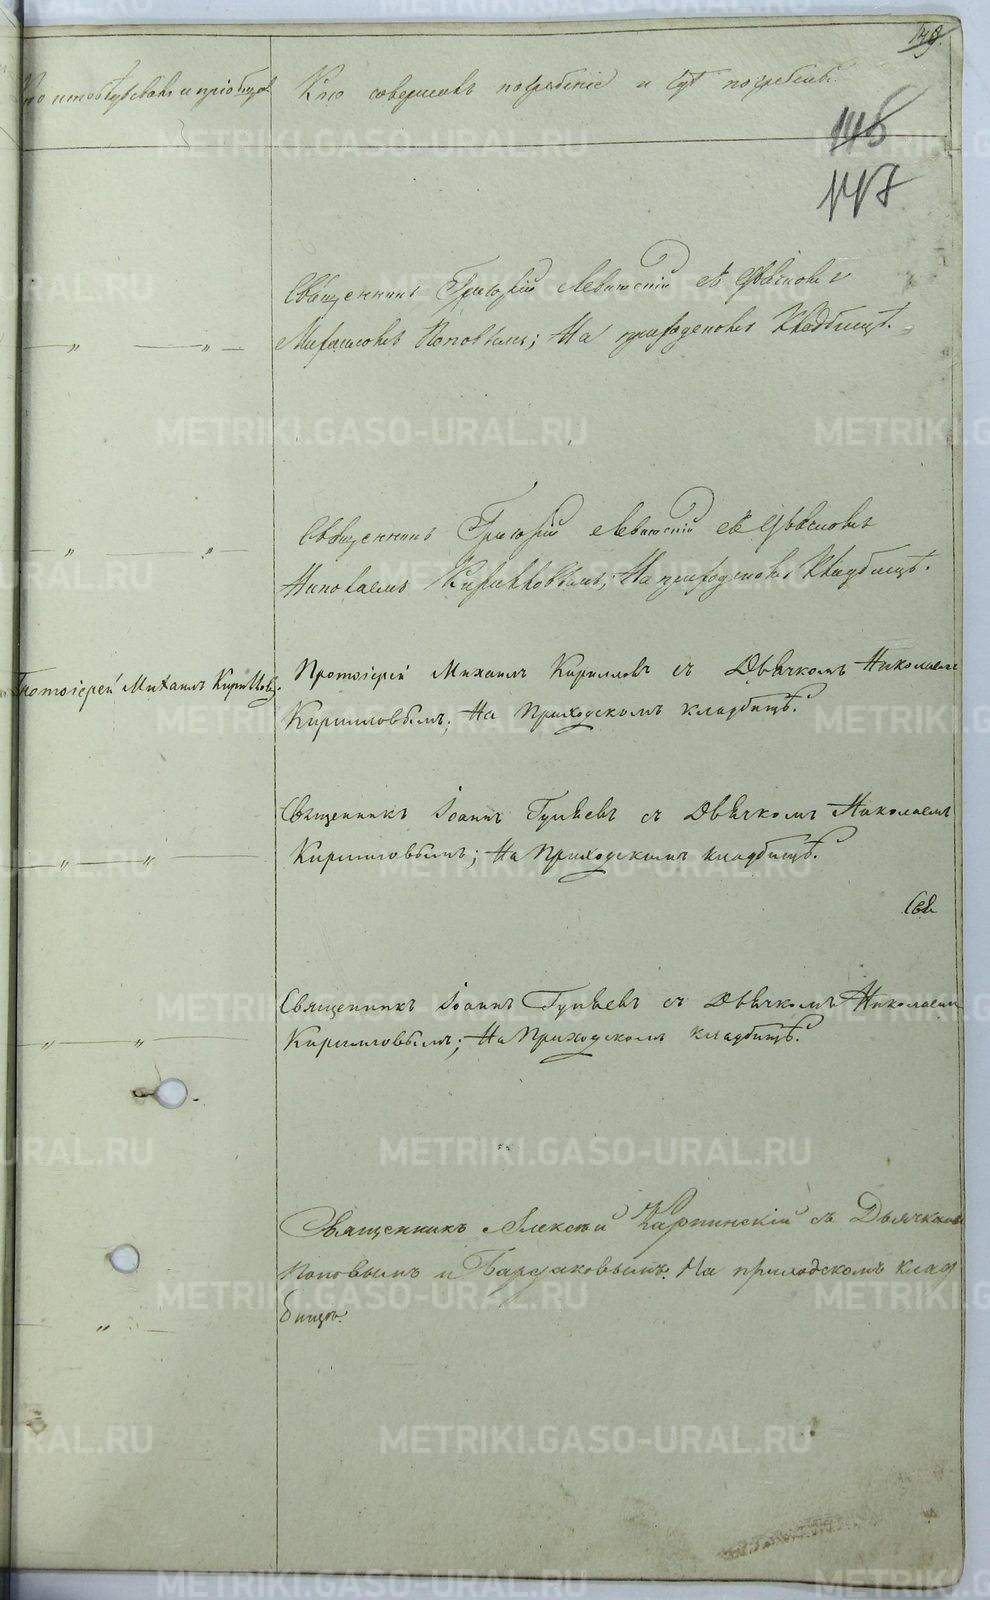 149.
Кто исповѣдывалъ и пріобщалъ
Кто совершалъ погребеніе и гдѣ погребены.
146
147
Священникъ Григорій Левитскій съ Дьячкомъ
Михаиломъ Поповымъ; На приходскомъ Кладбищѣ.
Священникъ Григорій Левитскій съ Дьячкомъ
Николаемъ Кирилловымъ; На приходскомъ Кладбищѣ.
Протоіерей Михаилъ Кирилловъ.
Протоіерей Михаилъ Кирилловъ съ Дьячкомъ Николаемъ
Кирилловымъ. На Приходскомъ кладбищѣ.
Священникъ Іоаннъ Гуляевъ съ Дьячкомъ Николаемъ
Кирилловымъ; На Приходскомъ кладбищѣ.
Священникъ Іоаннъ Гуляевъ съ Дьячкомъ Николаемъ
Кирилловымъ; На Приходскомъ кладбищѣ.
Священникъ Алексѣй Карпинскій съ Дьячками
Поповымъ и Бардаковымъ. На приходскомъ клад
бищѣ.
METRIKI.GASO-URAL.RU